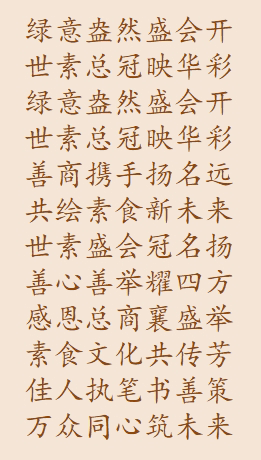 绿意盎然盛会开
世素总冠映华彩
绿意盎然盛会开
世素总冠映华彩
善商携手扬名远
共绘素食新未来
世素盛会冠名扬
善心善举耀四方
感恩总商襄盛举
素食文化共传芳
佳人执笔书善策
万众同心筑未来